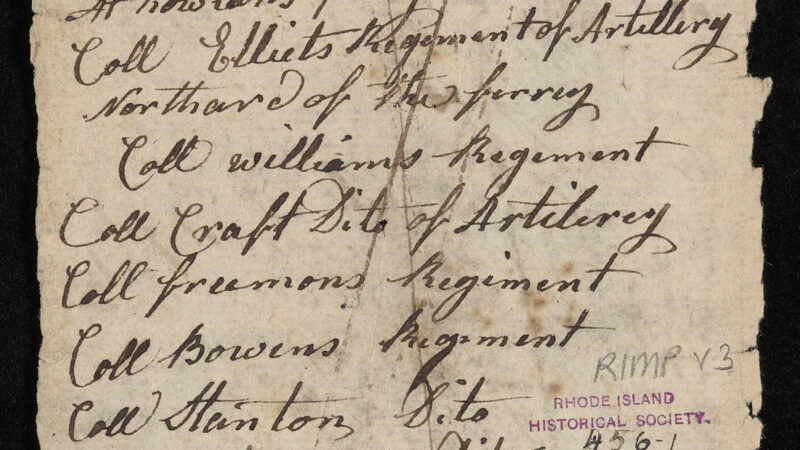 At howlans
Coll Elliets Regement of Artillery
Northard of the ferrey
Coll williams Regement
Coll Craft Dito of Artilerey
Coll freemons Regiment
Coll Bowens Regment
Coll Stainton Dito
RIMP v3
RHODE ISLAND
HISTORICAL SOCIETY.
456-1